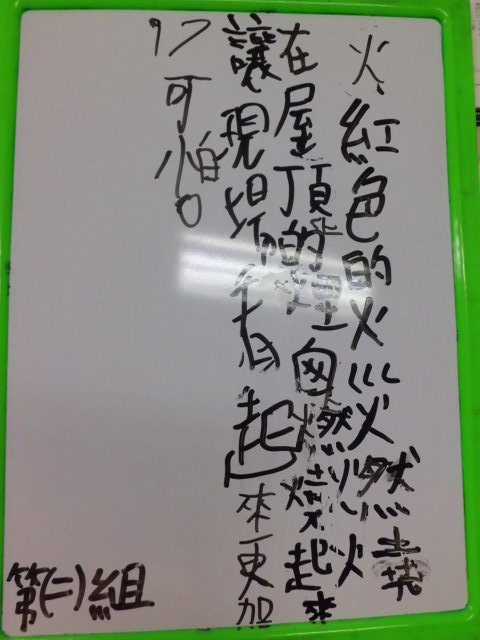 火紅色的火災燃
在屋頂上的煙囪燃燒起來
讓現場看起來更加
可怕。
第(二)組